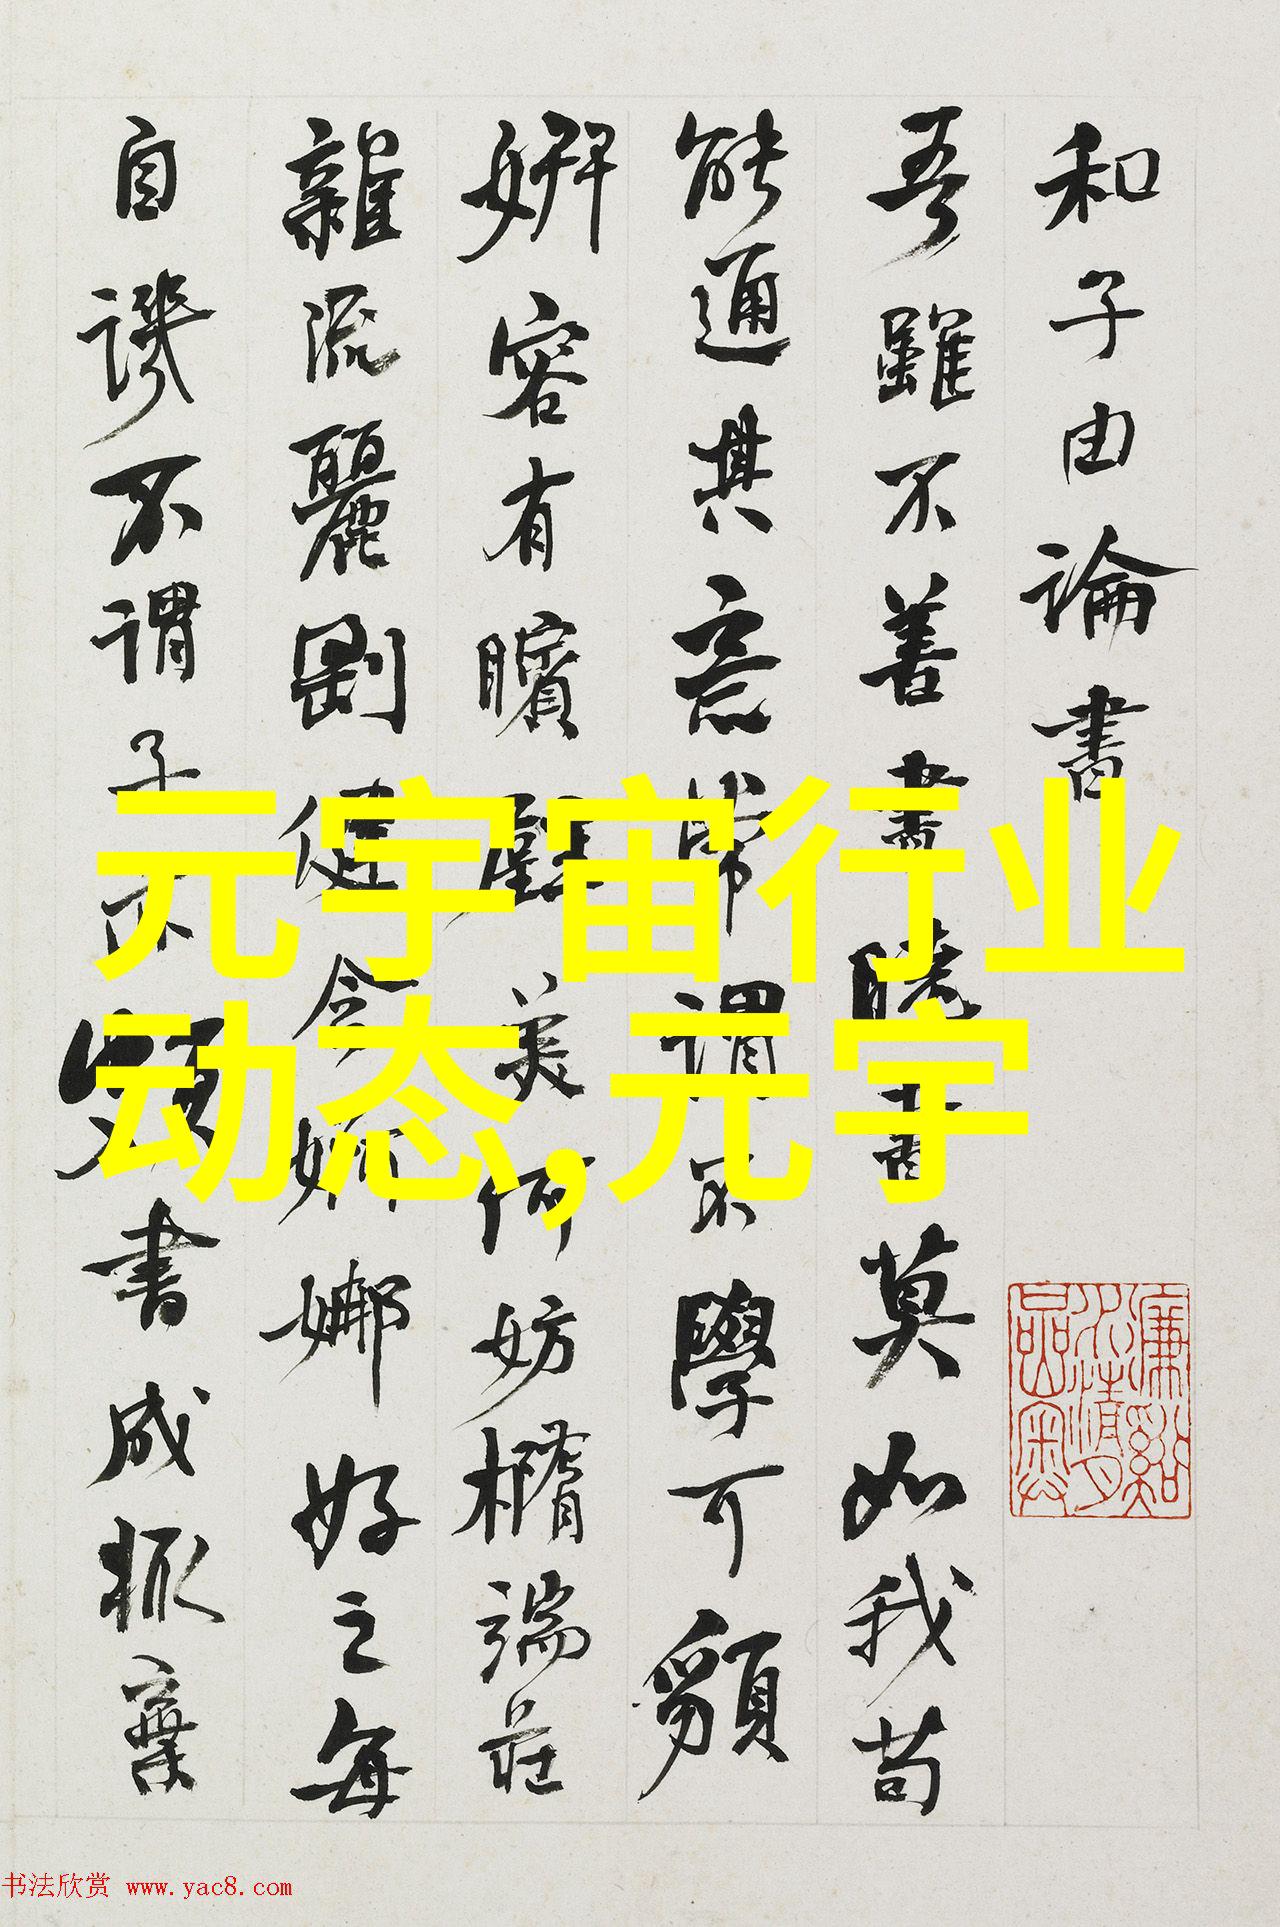 和子由論書
吾雖不善書曉書莫如我苟
能通其意常謂不學可䫉
姸容有矉璧美何妨橢端莊
雜流麗剛健含婀娜好之每
自譏不謂子亦頗書成輒棄
元宇宙行业
动态,元宇
书法欣赏 www.yac8.com